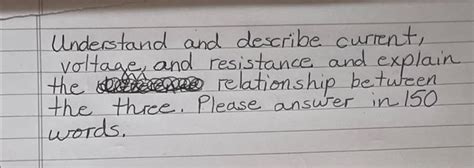 Understand and describe current,
voltage, and resistance and explain
the relationship between
the three. Please answer in 150
words.